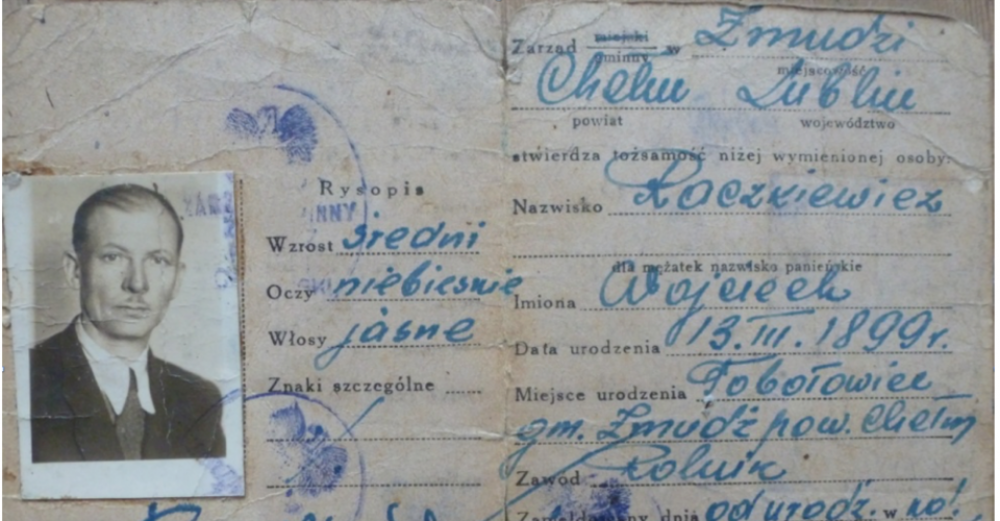 Zarząd miejski gminny w Żmudzi
miejscowość
Chełm Lublin
powiat województwo
stwierdza tożsamość niżej wymienionej osoby:
Nazwisko Raczkiewicz
dla mężatek nazwisko panieńskie
Imiona Wojciech
Data urodzenia 13.III.1899r.
Miejsce urodzenia
gm. Żmudź pow. Chełm
Zawód Rolnik
Zameldowany dnia od urodź. w
Rysopis
Wzrost średni
Oczy niebieskie
Włosy jasne
Znaki szczególne